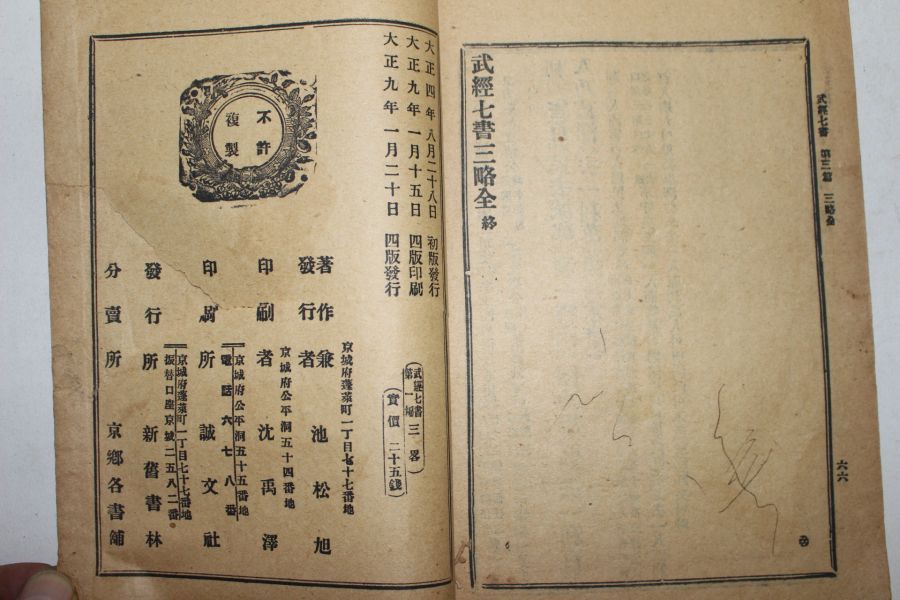 武經七書 第三篇 三略全
六六
武經七書三略全 終
大正四年八月二十八日 初版發行
大正九年一月十五日 四版印刷
大正九年一月二十日 四版發行
武經七書
三略
實價 二十五錢
不許
複製
京城府蓬萊町一丁目七十七番地
著作兼
發行者 池松旭
京城府公平洞五十四番地
印刷者 沈禹澤
京城府公平洞五十五番地
電話六七八番
印刷所 誠文社
京城府蓬萊町一丁目七十七番地
振替口座京城二五八二番
發行所 新舊書林
分賣所 京鄉各書舖